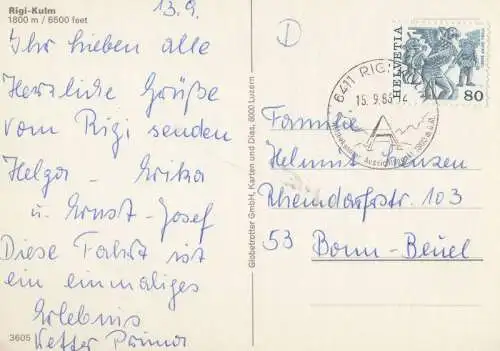 Rigi-Kulm
1800 m / 6500 feet
13.9.
Ihr lieben alle
Herzliche Grüße
vom Rigi senden
Helga - Erika
u. Ernst-Josef
Diese Fahrt ist
ein einmaliges
Erlebnis
Wetter Prima
3605
Globetrotter GmbH, Karten und Dias, 6000 Luzern
D
6411 RIGI
15.9.86-14
HELVETIA
80
Familie
Helmut Lenzen
Rheindorferstr. 103
53 Bonn-Beuel